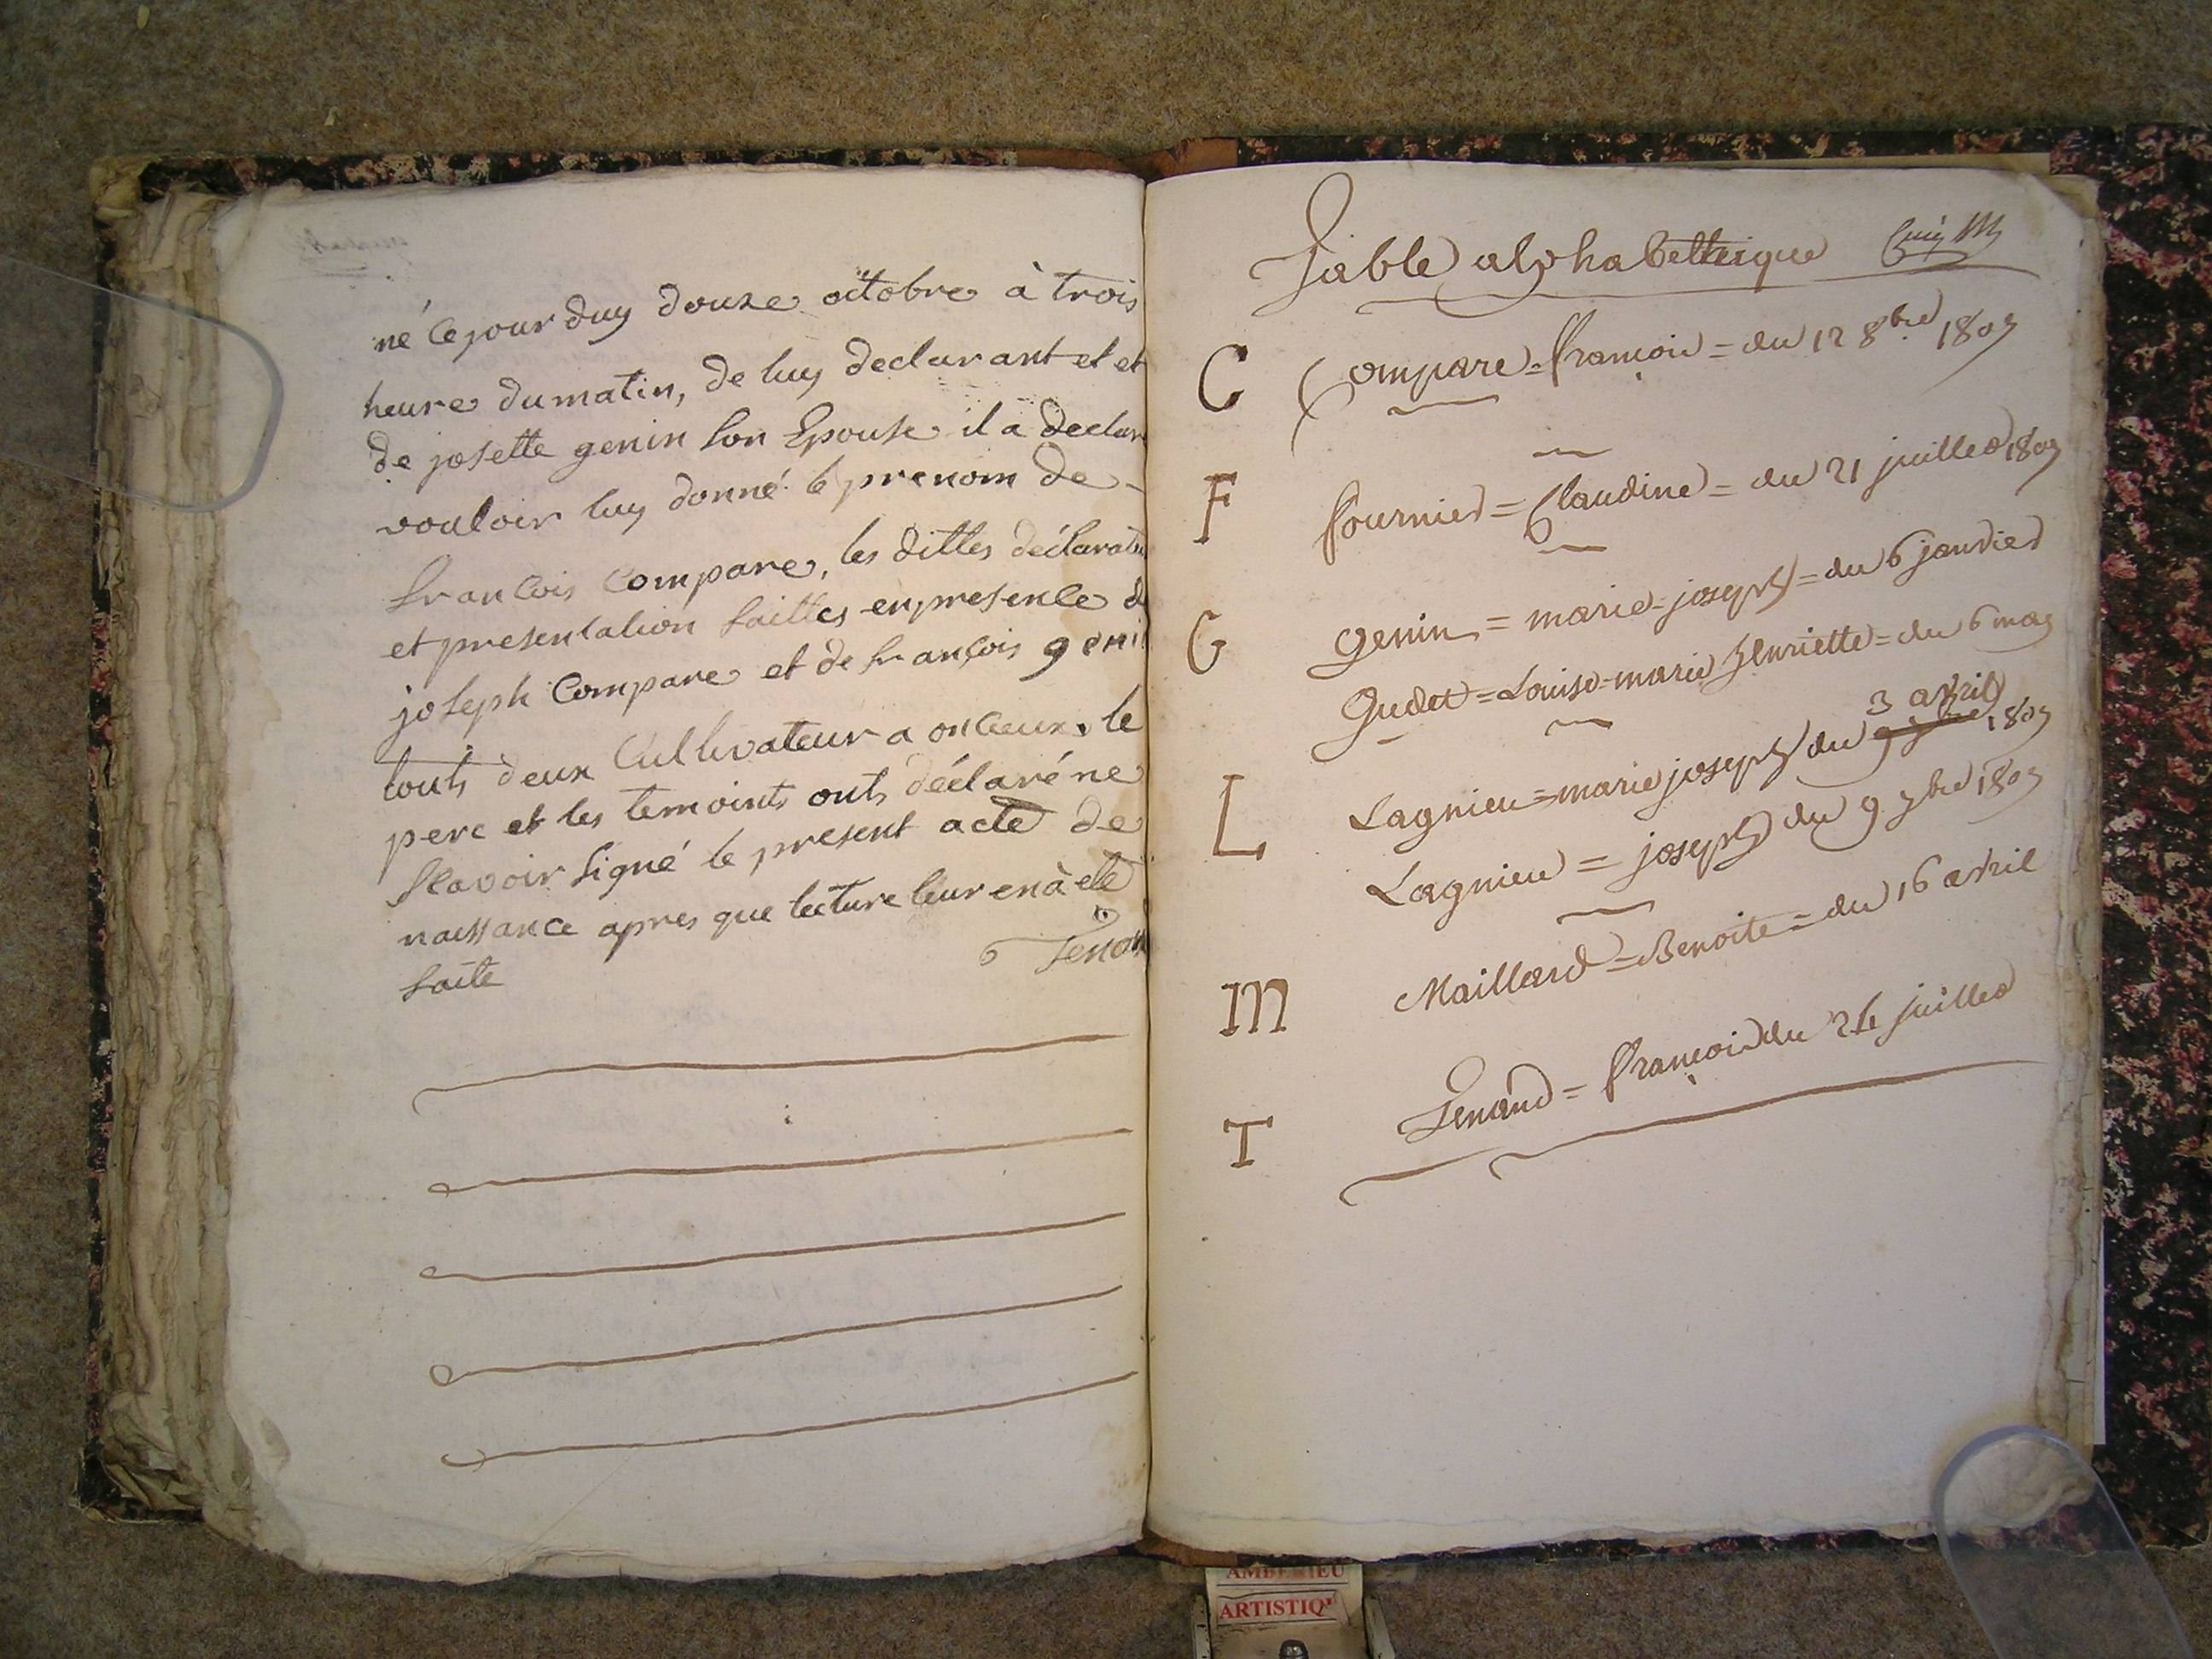 né Cejour duy douze octobre à trois
heure du matin, de luy declarant et et
de josette genin son Epouse il a declar
vouloir luy donné le prenom de -
francois Compare, les dittes déclarati
et presentation faittes en presence d
joseph Compare et de françois geni
touts deux Cultivateur a oncieux, le
pere et les temoints onts déclaré ne
scavoir signé le present acte de
naissance apres que lecture leur en à eté
faite
Tenan
Table alphabetheique
C Compare = françois = du 12 8.bre 1807
F fournier = Claudine = du 21 juillet 1807
G genin = marie-joseph = du 6 janvier
Gudet = Louise = marie henriette = du 6 may
3 avril
L Lagnieu = marie joseph du 9 7bre 1807
Lagnieu = joseph du 9 7bre 1807
M Maillard = Benoite = du 16 avril
T Tenand = françois du 24 juillet
AMBERIEU
ARTISTIQ